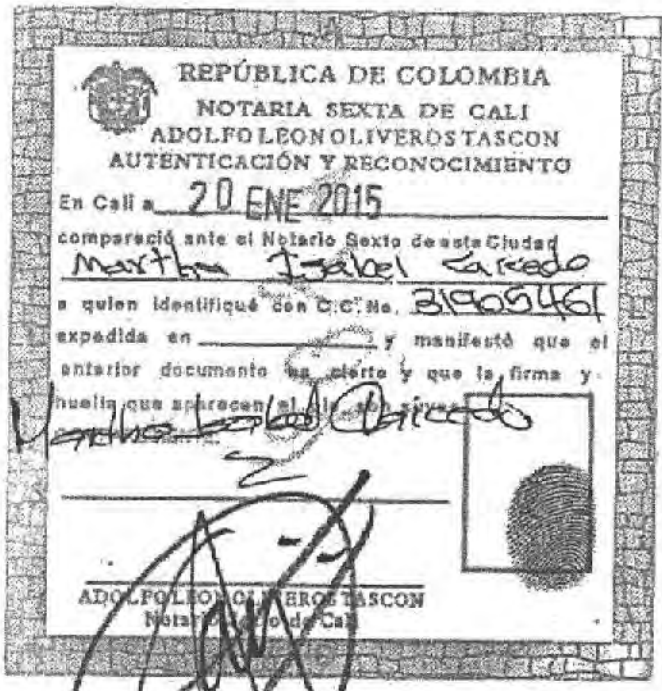 REPÚBLICA DE COLOMBIA
NOTARIA SEXTA DE CALI
ADOLFO LEON OLIVEROS TASCON
AUTENTICACIÓN Y RECONOCIMIENTO
En Cali a 20 ENE 2015
compareció ante el Notario Sexto de esta Ciudad
Martha Isabel Caicedo
a quien identifiqué con C.C. No. 31905461
expedida en y manifestó que el
anterior documento es cierto y que la firma y
huella que aparecen al pie son suyas
Martha Isabel Caicedo
ADOLFO LEON OLIVEROS TASCON
Notario Sexto de Cali